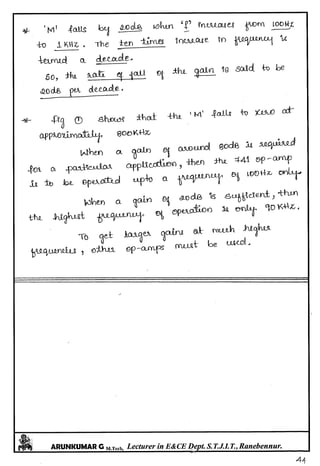 * 'M' falls by 20dB when 'f' increases from 100HZ
to 1 KHZ. The ten times increase in frequency is
termed a decade.
So, the rate of fall of the gain is said to be
20dB per decade.
* Fig ① shows that the 'M' falls to zero at
approximately 800KHZ
When a gain of around 80dB is required
for a particular application, then the 741 op-amp
is to be operated upto a frequency of 100HZ only.
When a gain of 20dB is sufficient, then
the highest frequency of operation is only 90KHZ.
To get larger gains at much higher
frequencies, other op-amps must be used.
ARUNKUMAR G M.Tech, Lecturer in E&CE Dept. S.T.J.I.T., Ranebennur.